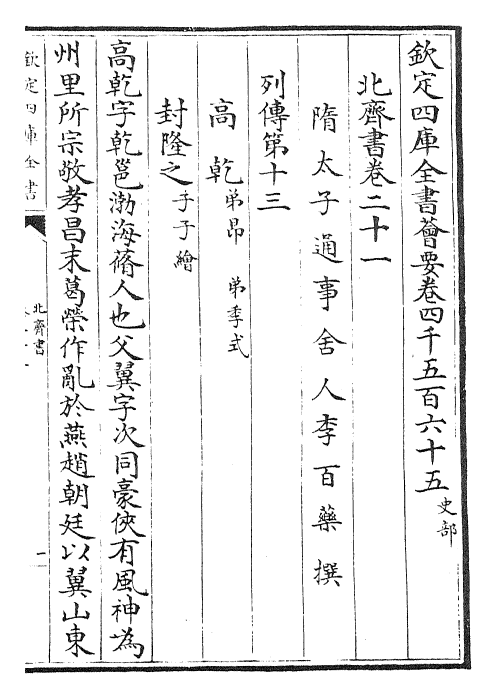 欽定四庫全書薈要卷四千五百六十五 史部
北齊書卷二十一
隋太子通事舍人李百藥撰
列傳第十三
高乾 弟昂 弟季式
封隆之 子子繪
高乾字乾邕渤海蓨人也父翼字次同豪俠有風神為
州里所宗敬孝昌末葛榮作亂於燕趙朝廷以翼山東
欽定四庫全書
北齊書
一